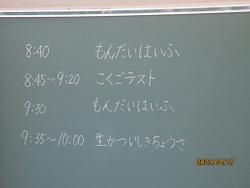 8:40 もんだいはいふ
8:45～9:20 こくごテスト
9:30 もんだいはいふ
9:35～10:00 生かついしきちょうさ